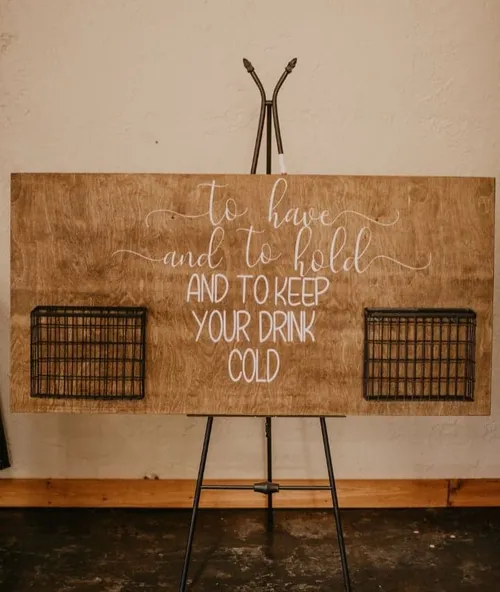 to have
and to hold
AND TO KEEP
YOUR DRINK
COLD